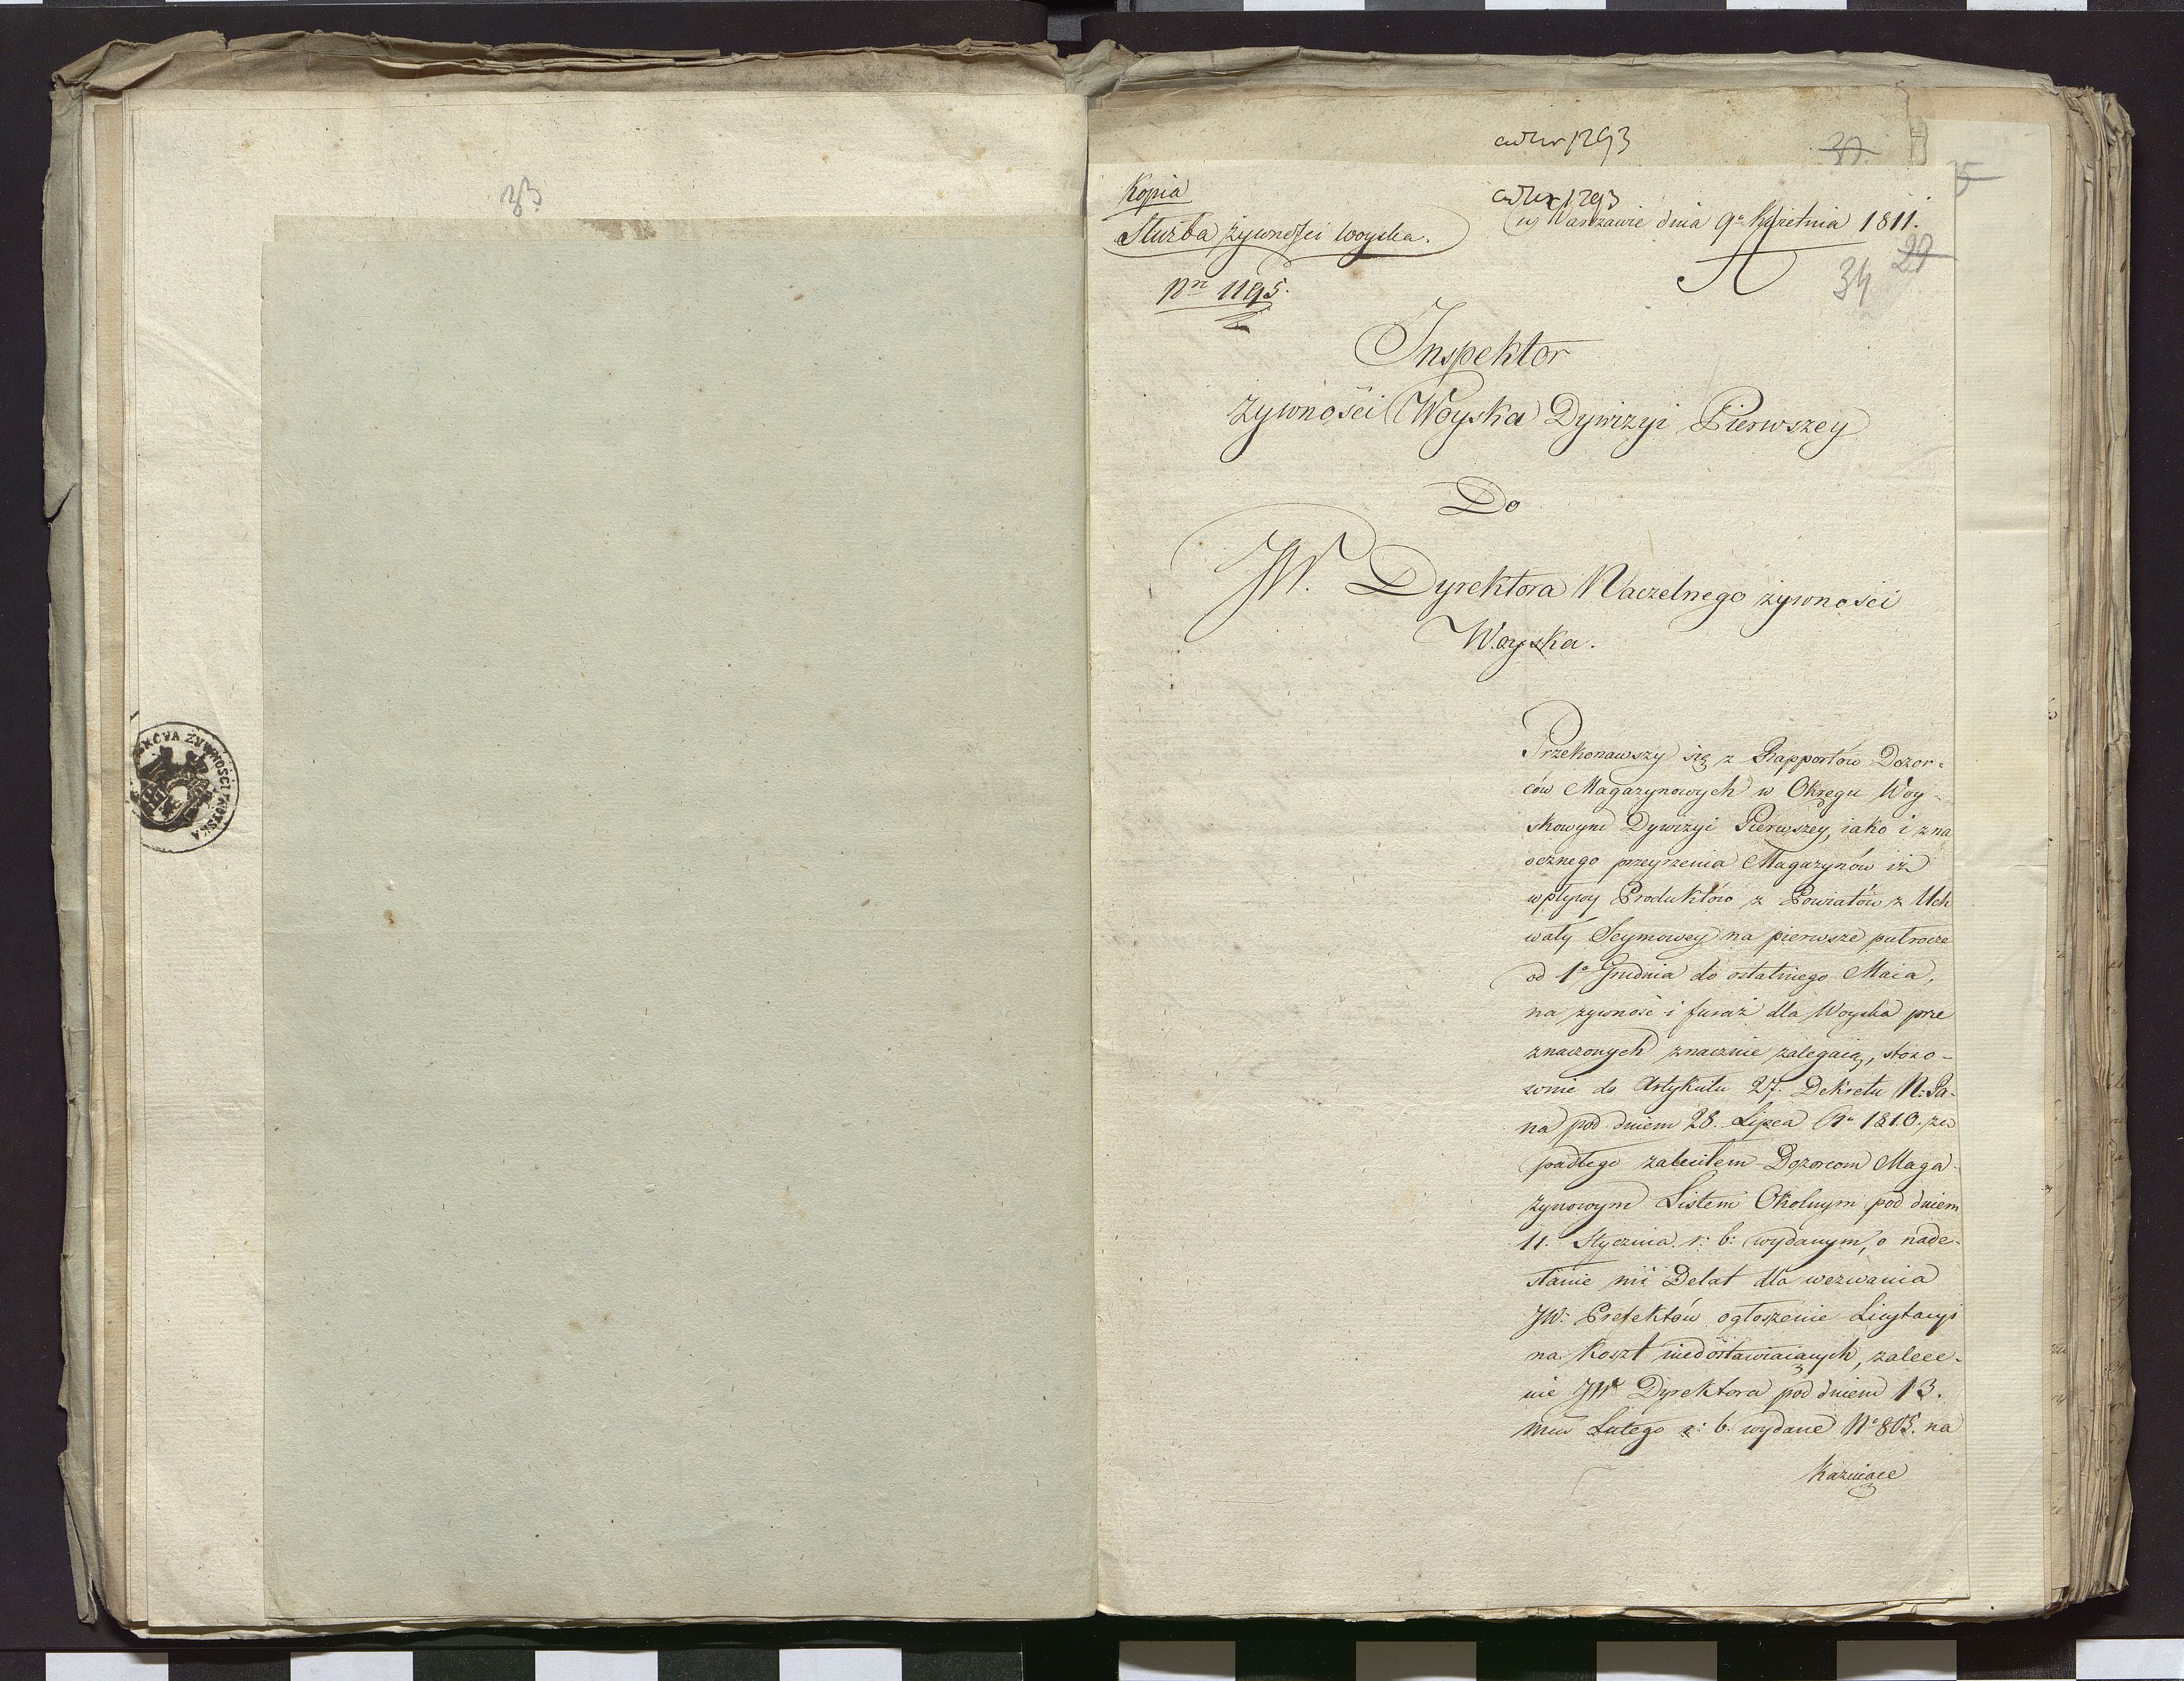 33
KCYA ZYWNOSCI WOYSKA
ad Nr 1293
37
5
Kopia
ad Nr 1293
w Warszawie dnia 9° Kwietnia 1811.
Służba żywności woyska.
A
34
29
Nr 1195.
Inspektor
żywności Woyska Dywizyi Pierwszey
Do
JW. Dyrektora Naczelnego żywności
Woyska.
Przekonawszy się z Rapportów Dozor-
ców Magazynowych w Okręgu Woy-
skowym Dywizyi Pierwszey, iako i z na
ocznego przeyrzenia Magazynów iż
wpływy Produktów z Powiatów z Uch
wały Seymowey na pierwsze pułrocze
od 1° Grudnia do ostatniego Maia,
na żywność i furaż dla Woyska prze
znaczonych znacznie zalegaią, stoso-
wnie do Artykułu 27. Dekretu N: Pa-
na pod dniem 28. Lipca Ru 1810. za
padłego zaleciłem Dozorcom Maga-
zynowym Listem Okolnym pod dniem
11. Stycznia r: b: wydanym, o nade-
słanie mi Delat dla wezwania
JW. Prefektów ogłoszenie Licytacyi
na koszt niedostawiaiących, zalece-
nie JW Dyrektora pod dniem 13.
mca Lutego r: b. wydane No 805. na
kazuiące